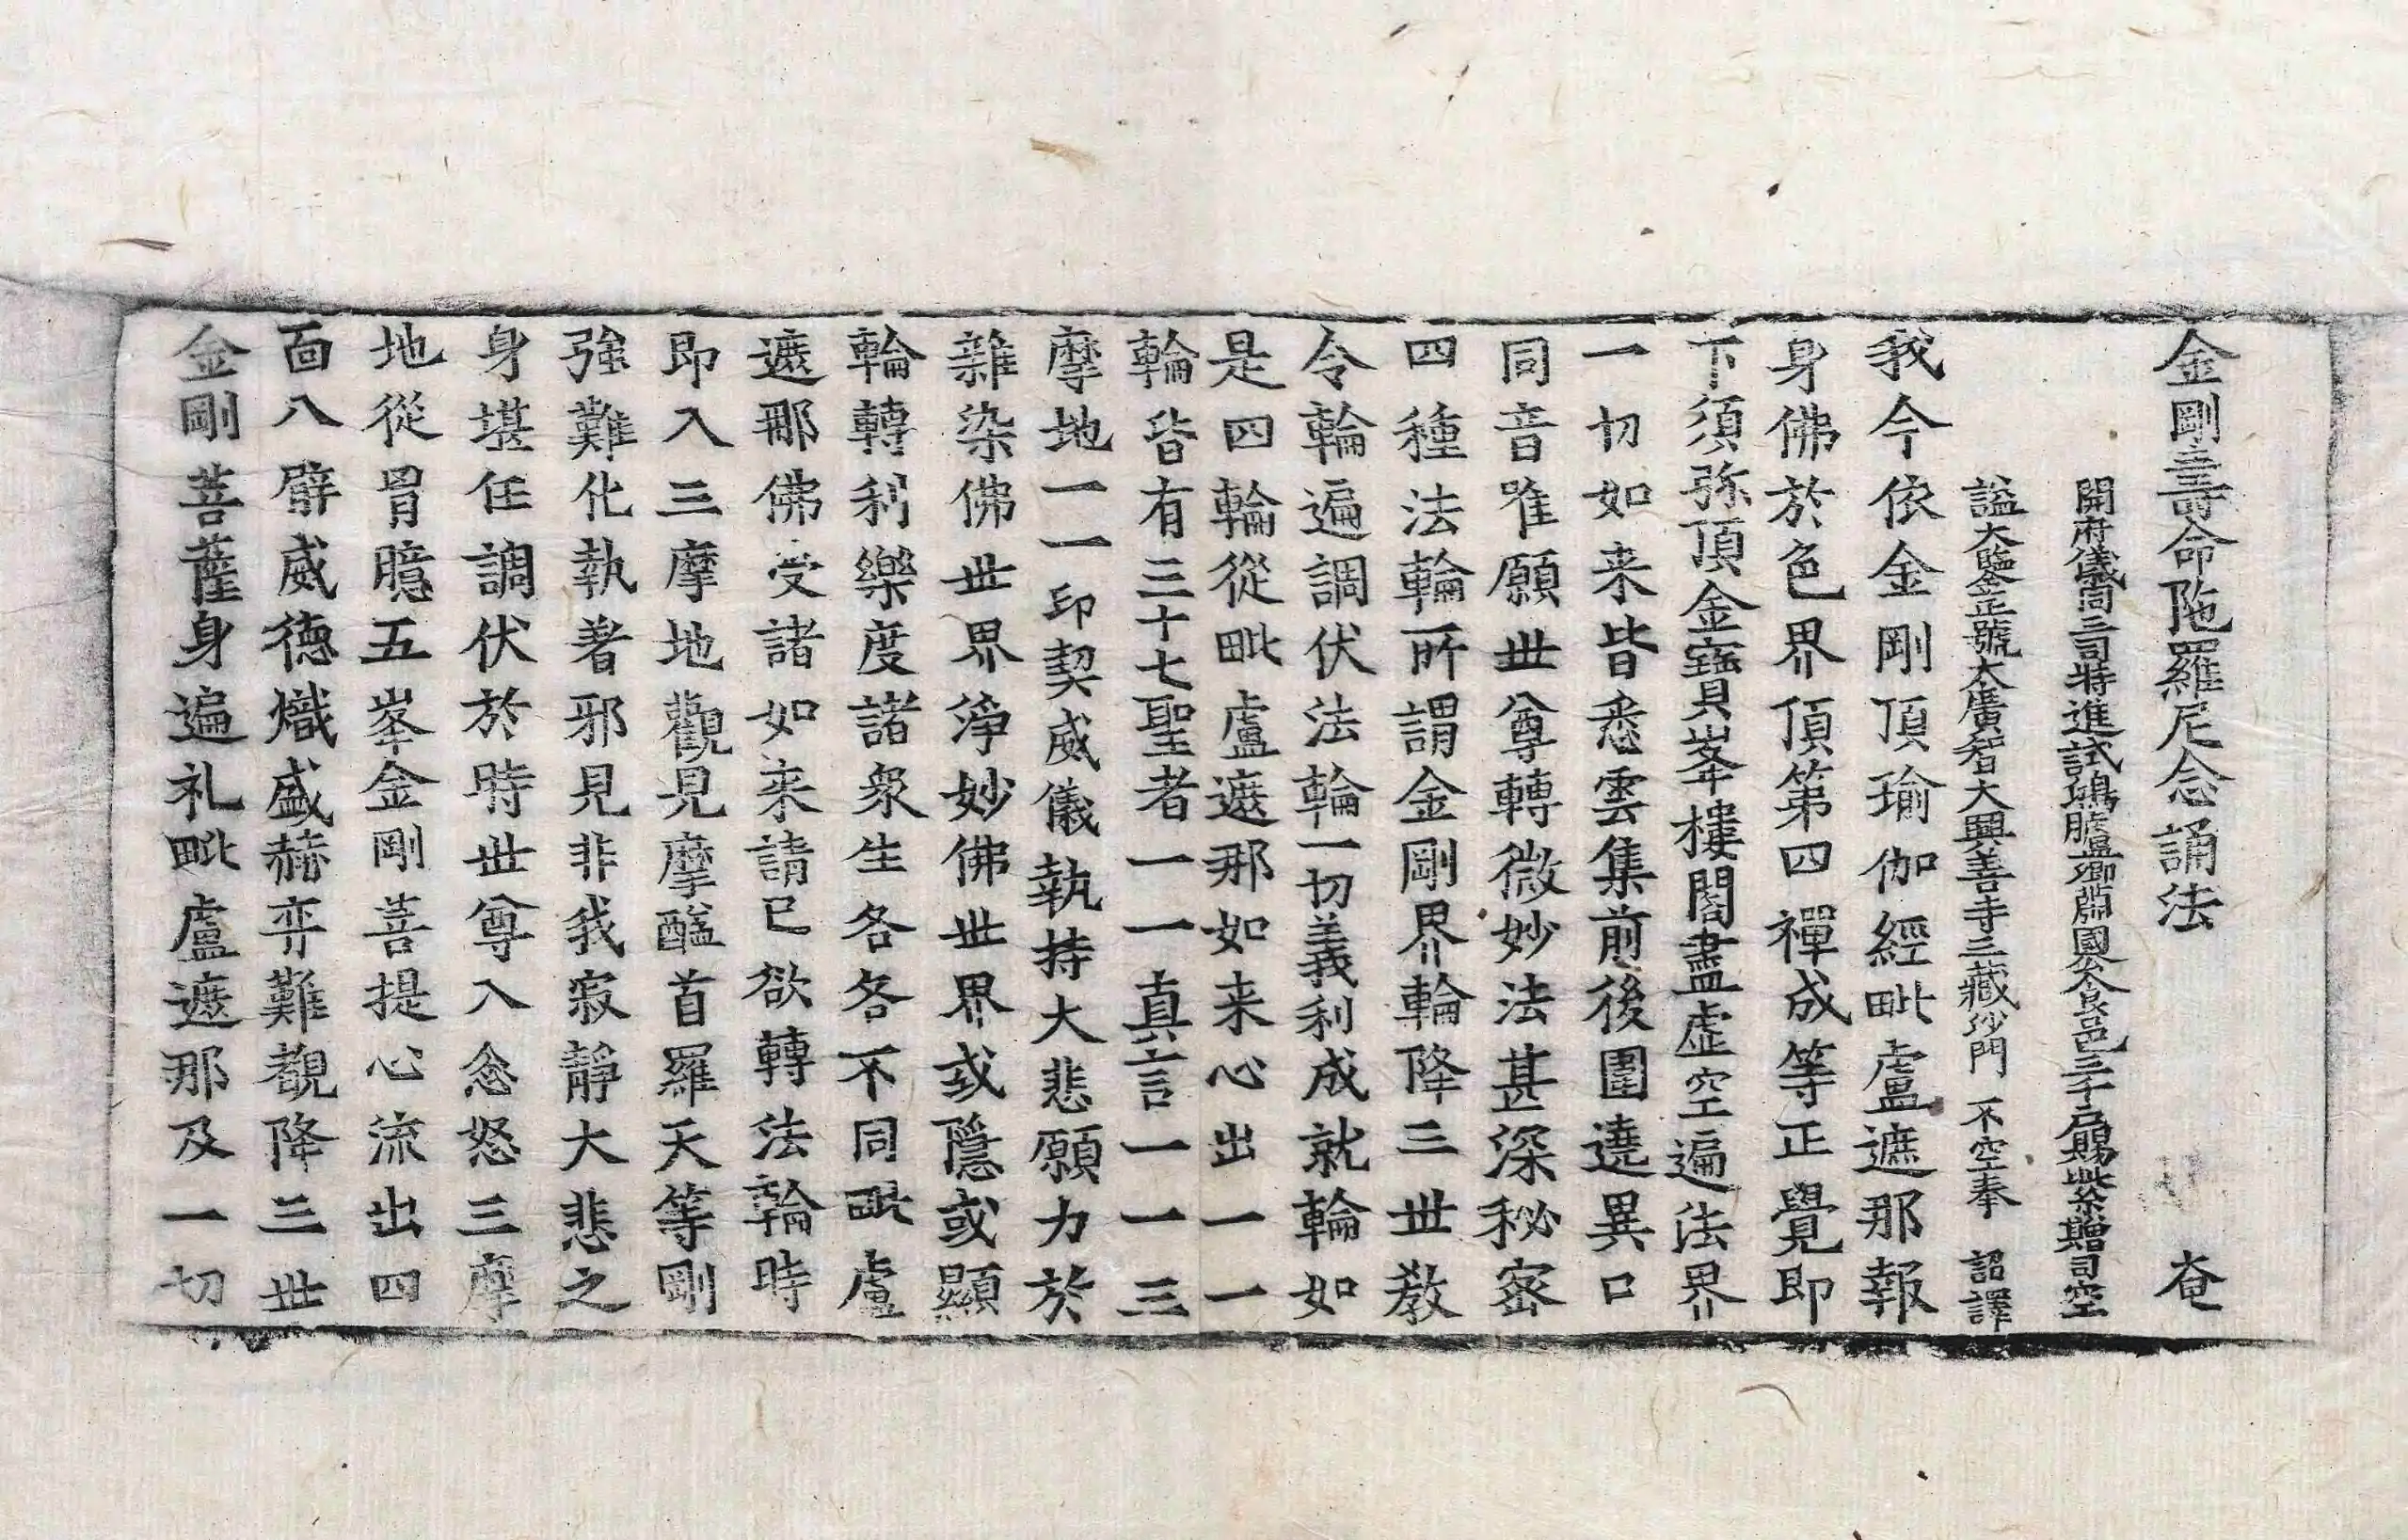 金剛壽命陁羅尼念誦法 奄
開府儀同三司特進試鴻臚卿肅國公食邑三千户賜紫贈司空
諡大鑒正號大廣智大興善寺三藏沙門 不空奉 詔譯
我今依金剛頂瑜伽經毗盧遮那報
身佛於色界頂第四禪成等正覺即
下須弥頂金寶貝峯樓閣盡虛空遍法界
一切如来皆悉雲集前後圍遶異口
同音唯願世尊轉微妙法甚深秘密
四種法輪所謂金剛界輪降三世教
令輪遍調伏法輪一切義利成就輪如
是四輪從毗盧遮那如来心出一一
輪皆有三十七聖者一一真言一一三
摩地一一印契威儀執持大悲願力於
雜染佛世界淨妙佛世界或隱或顯
輪轉利樂度諸衆生各各不同毗盧
遮那佛受諸如来請已欲轉法輪時
即入三摩地觀見摩醯首羅天等剛
強難化執著邪見非我寂靜大悲之
身堪任調伏於時世尊入忿怒三摩
地從胷臆五峯金剛菩提心流出四
面八臂威德熾盛赫弈難覩降三世
金剛菩薩身遍礼毗盧遮那及一切